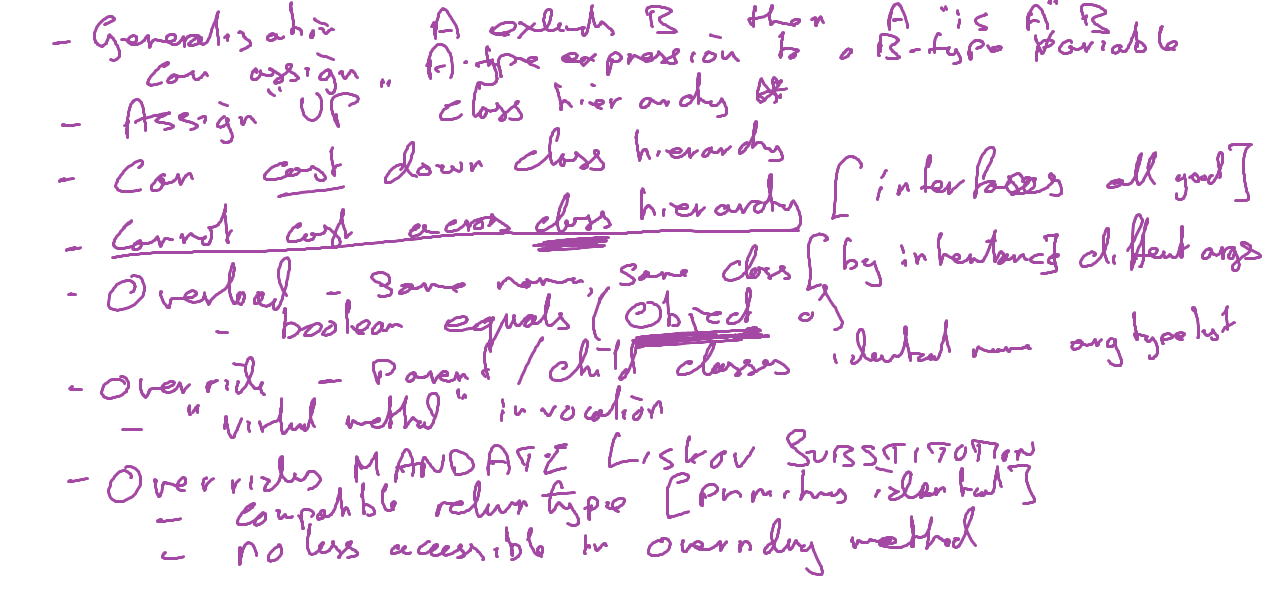 - Generalisation A extends B then A "is A" B
can assign A-type expression to a B-type variable
- Assign "UP" class hierarchy *
- Can cast down class hierarchy
- Cannot cast across class hierarchy [interfaces all good]
- Overload - Same name, same class [by inheritance] different args
- boolean equals (Object o)
- Override - Parent / child classes identical name arg type list
- "virtual method" invocation
- Overrides MANDATE Liskov SUBSTITUTION
- compatible return type [primitives identical]
- no less accessible in overriding method